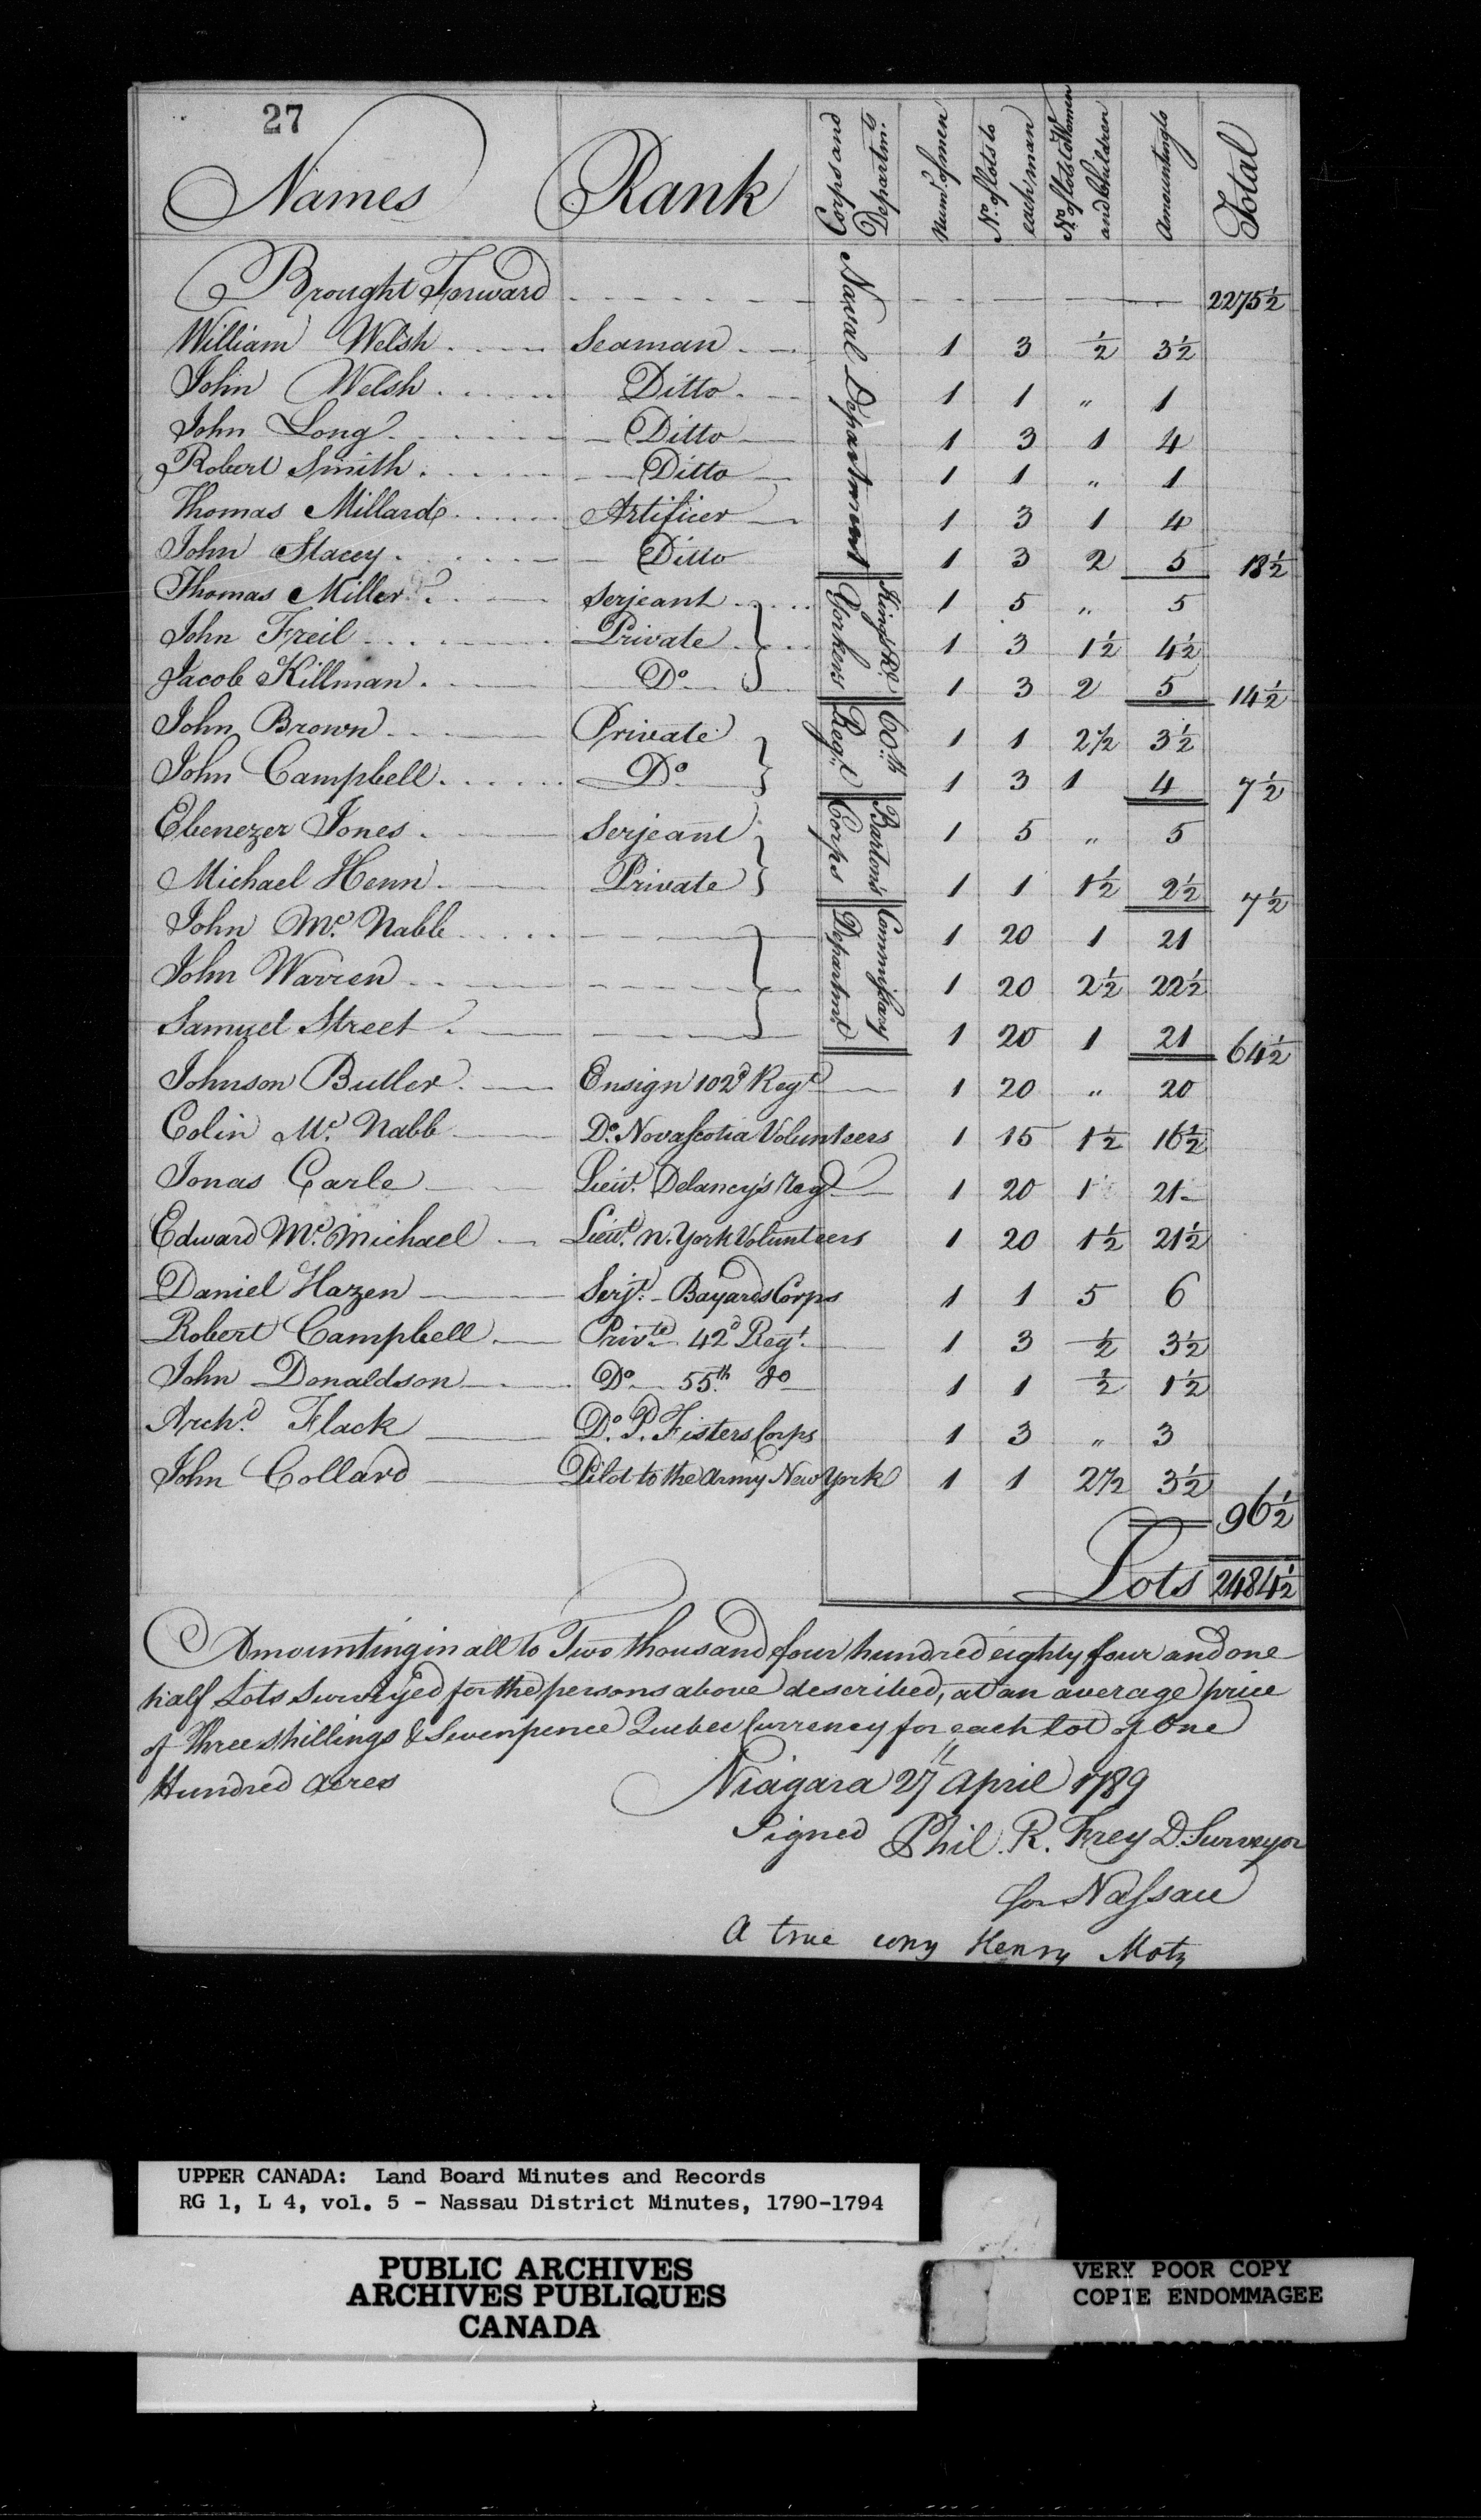 27
Names Rank Corps and Departm.ts Num.r of men No. of lots to each man No. of lots to Women and Children Amounting to Total
Brought Forward 2275½
William Welsh Seaman Naval Department 1 3 ½ 3½
John Welsh Ditto 1 1 " 1
John Long Ditto 1 3 1 4
Robert Smith Ditto 1 1 " 1
Thomas Millard Artificer 1 3 1 4
John Stacey Ditto 1 3 2 5 18½
Thomas Miller Serjeant King's Rl. Yorkers 1 5 " 5
John Freil Private 1 3 1½ 4½
Jacob Killman Do. 1 3 2 5 14½
John Brown Private 60.th Reg.t 1 1 2½ 3½
John Campbell Do. 1 3 1 4 7½
Ebenezer Jones Serjeant Barton's Corps 1 5 " 5
Michael Henn Private 1 1 1½ 2½ 7½
John Mc. Nabb Commissary Departm.t 1 20 1 21
John Warren 1 20 2½ 22½
Samuel Street 1 20 1 21 64½
Johnson Butler Ensign 102d Regt 1 20 " 20
Colin Mc. Nabb Do. Nova Scotia Volunteers 1 15 1½ 16½
Jonas Carle Lieut. Delancy's Regt 1 20 1 21
Edward Mc. Michael Lieut. N. York Volunteers 1 20 1½ 21½
Daniel Hazen Serjt. Bayards Corps 1 1 5 6
Robert Campbell Privte 42d Regt. 1 3 ½ 3½
John Donaldson Do 55th. do 1 1 ½ 1½
Archd. Flack Do. P. Fisters Corps 1 3 " 3
John Collard Pilot to the Army New York 1 1 2½ 3½
96½
Lots 2484½
Amounting in all to Two thousand four hundred eighty four and one
half Lots Surveyed for the persons above described, at an average price
of Three shillings & Sevenpence Quebec Currency for each Lot of One
Hundred Acres
Niagara 27th April 1789
Signed Phil. R. Frey D. Surveyor
for Nassau
A true copy Henry Motz
UPPER CANADA: Land Board Minutes and Records
RG 1, L 4, vol. 5 - Nassau District Minutes, 1790-1794
PUBLIC ARCHIVES
ARCHIVES PUBLIQUES
CANADA
VERY POOR COPY
COPIE ENDOMMAGEE